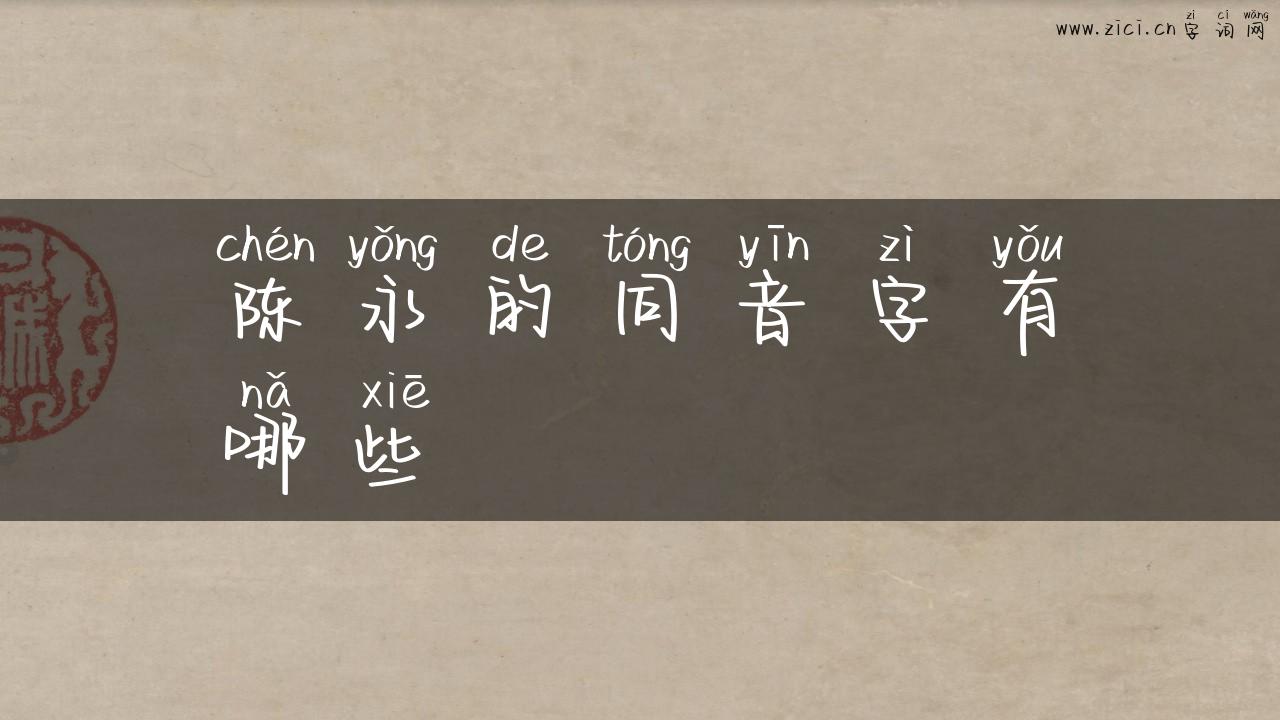 zì cí wǎng
www.zici.cn字词网
chén yǒng de tóng yīn zì yǒu
陈永的同音字有
nǎ xiē
哪些